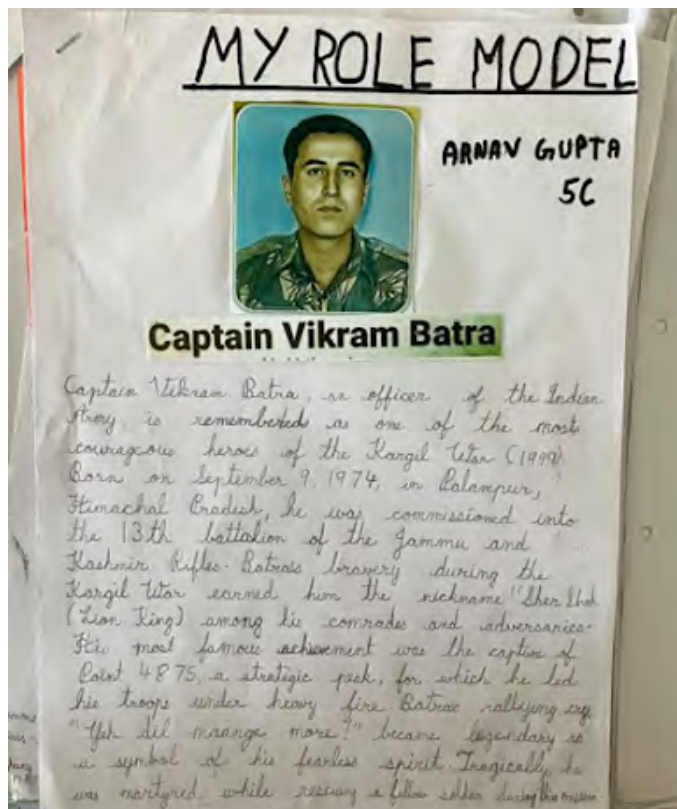 MY ROLE MODEL
ARNAV GUPTA
5C
Captain Vikram Batra
Captain Vikram Batra, an officer of the Indian
Army, is remembered as one of the most
courageous heroes of the Kargil War (1999).
Born on September 9, 1974, in Palampur,
Himachal Pradesh, he was commissioned into
the 13th battalion of the Jammu and
Kashmir Rifles. Batra's bravery during the
Kargil War earned him the nickname "Sher Shah
(Lion King) among his comrades and adversaries.
His most famous achievement was the capture of
Point 4875, a strategic peak, for which he led
his troops under heavy fire Batra's rallying cry,
"Yeh dil maange more!" became legendary as
a symbol of his fearless spirit. Tragically, he
was martyred while rescuing a fellow solder during this mission.